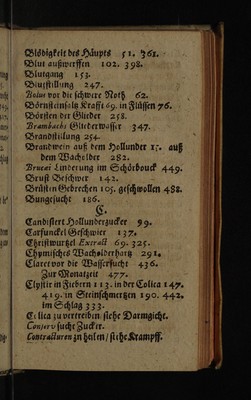 Blödigkeit des Häupts 51. 361.
Blut außwerffen 102. 398.
Blutgang 153.
Blutstillung 247.
Bolus vor die schwere Noth 62.
Börnsteinsalz Krafft 69. in Flüssen 76.
Börsten der Glieder 258.
Brambachs Gliederwasser 347.
Brandstillung 254.
Brandwein auß dem Hollunder 15. auß
dem Wacholder 282.
Brunai Linderung im Schörbouck 449.
Brust Beschwer 142.
Brüsten Gebrechen 105. geschwollen 488.
Bungesucht 186.
C.
Candisiert Hollunderzucker 99.
Carfunckel Geschwier 137.
Christwurtzel Extract 69. 325.
Chymisches Wacholderhartz 291.
Claret vor die Wassersucht 436.
Zur Monatzeit 477.
Clystir in Fiebern 113. in der Colica 147.
419. in Steinschmertzen 190. 442.
im Schlag 333.
Colica zu vertreiben siehe Darmgicht.
Conserv suche Zucker.
Contracturen zu heilen/ siehe Krampff.